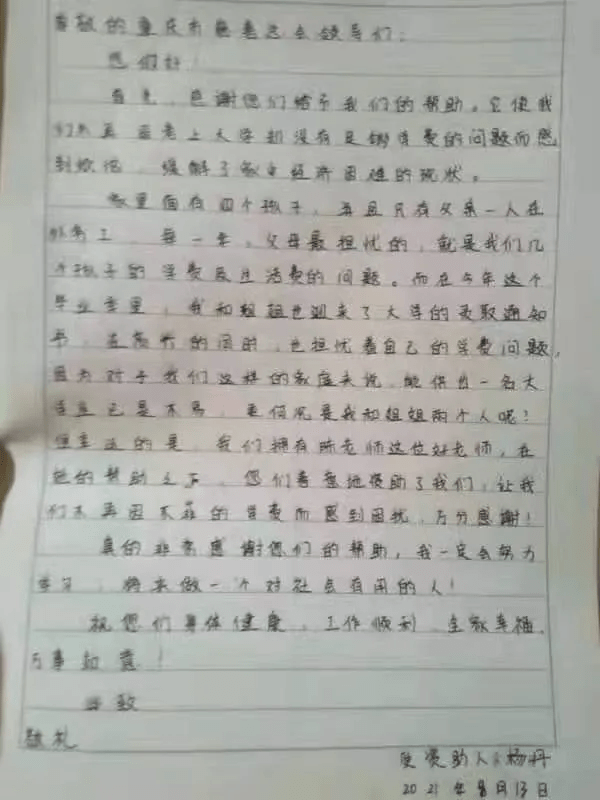 尊敬的重庆市慈善总会领导们:
您们好!
首先,感谢您们给予我们的帮助。它使我
们不再因考上大学却没有足够学费的问题而感
到烦恼,缓解了家中经济困难的现状。
家里面有四个孩子,并且只有父亲一人在
外务工,每一年,父母最担忧的,就是我们几
个孩子的学费及生活费的问题。而在今年这个
毕业季里,我和姐姐也迎来了大学的录取通知
书,在高兴的同时,也担忧着自己的学费问题,
因为对于我们这样的家庭来说,能供出一名大
学生已是不易,更何况是我和姐姐两个人呢?
但幸运的是,我们拥有陈老师这位好老师,在
她的帮助之下,您们善意地援助了我们,让我
们不再因不菲的学费而感到困扰,万分感谢!
真的非常感谢您们的帮助,我一定会努力
学习,将来做一个对社会有用的人!
祝您们身体健康,工作顺利,全家幸福,
万事如意!
此致
敬礼
受资助人:杨丹
2021年8月13日